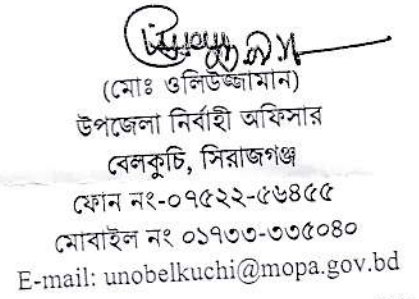 (মোঃ ওলিউজ্জামান)
উপজেলা নির্বাহী অফিসার
বেলকুচি, সিরাজগঞ্জ
ফোন নং-০৭৫২২-৫৬৪৫৫
মোবাইল নং ০১৭৩৩-৩৩৫০৪০
E-mail: unobelkuchi@mopa.gov.bd